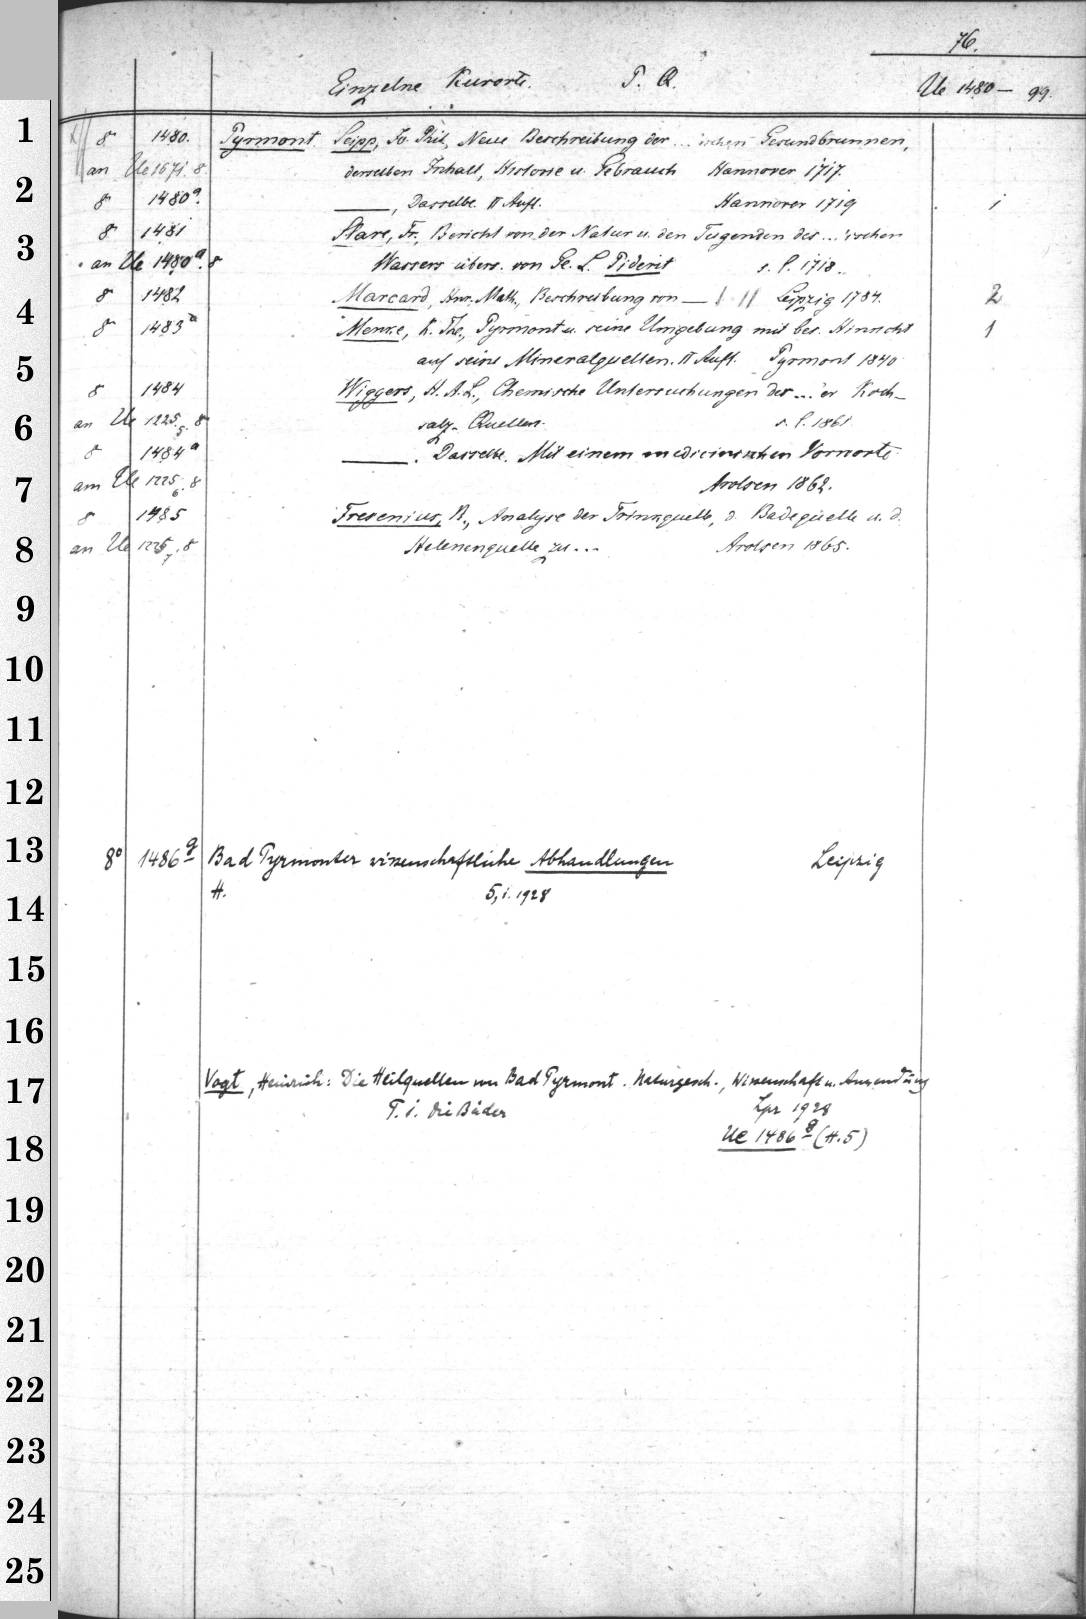 76.
Einzelne Kurorte. P. Q. Ue 1480 — 99.
8 1480. Pyrmont Seipp, Jo. Phil., Neue Beschreibung der ... ischen Gesundbrunnen,
an Ue 1671. 8. derselben Inhalt, Historie u. Gebrauch Hannover 1717.
8 1480a. ——, Dasselbe. II Aufl. Hannover 1719 1
8 1481 Slare, Fr., Bericht von der Natur u. den Tugenden des ... ischen
an Ue 1480a. 8 Wassers übers. von Ge. L. Piderit s. l. 1718.
8 1482 Marcard, Hnr. Math., Beschreibung von — I II Leipzig 1784. 2
8 1483a Menke, K. Th., Pyrmont u. seine Umgebung mit bes. Hinsicht 1
auf seine Mineralquellen. II Aufl. Pyrmont 1840
8 1484 Wiggers, H. A. L., Chemische Untersuchungen der ... er Koch-
an Ue 1225,5. 8 salz-Quellen. s. l. 1861
8 1484a ——. Dasselbe. Mit einem medicinischen Vorworte
am Ue 1225,6. 8 Arolsen 1862.
8 1485 Fresenius, R., Analyse der Trinkquelle, d. Badequelle u. d.
an Ue 1225,7. 8 Helenenquelle zu ... Arolsen 1865.
8° 1486g Bad Pyrmonter wissenschaftliche Abhandlungen Leipzig
H. 5, i. 1928
Vogt, Heinrich: Die Heilquellen von Bad Pyrmont. Naturgesch., Wissenschaft u. Anwendung
T. 1. Die Bäder Lpz 1928
Ue 1486g (H. 5)
1
2
3
4
5
6
7
8
9
10
11
12
13
14
15
16
17
18
19
20
21
22
23
24
25